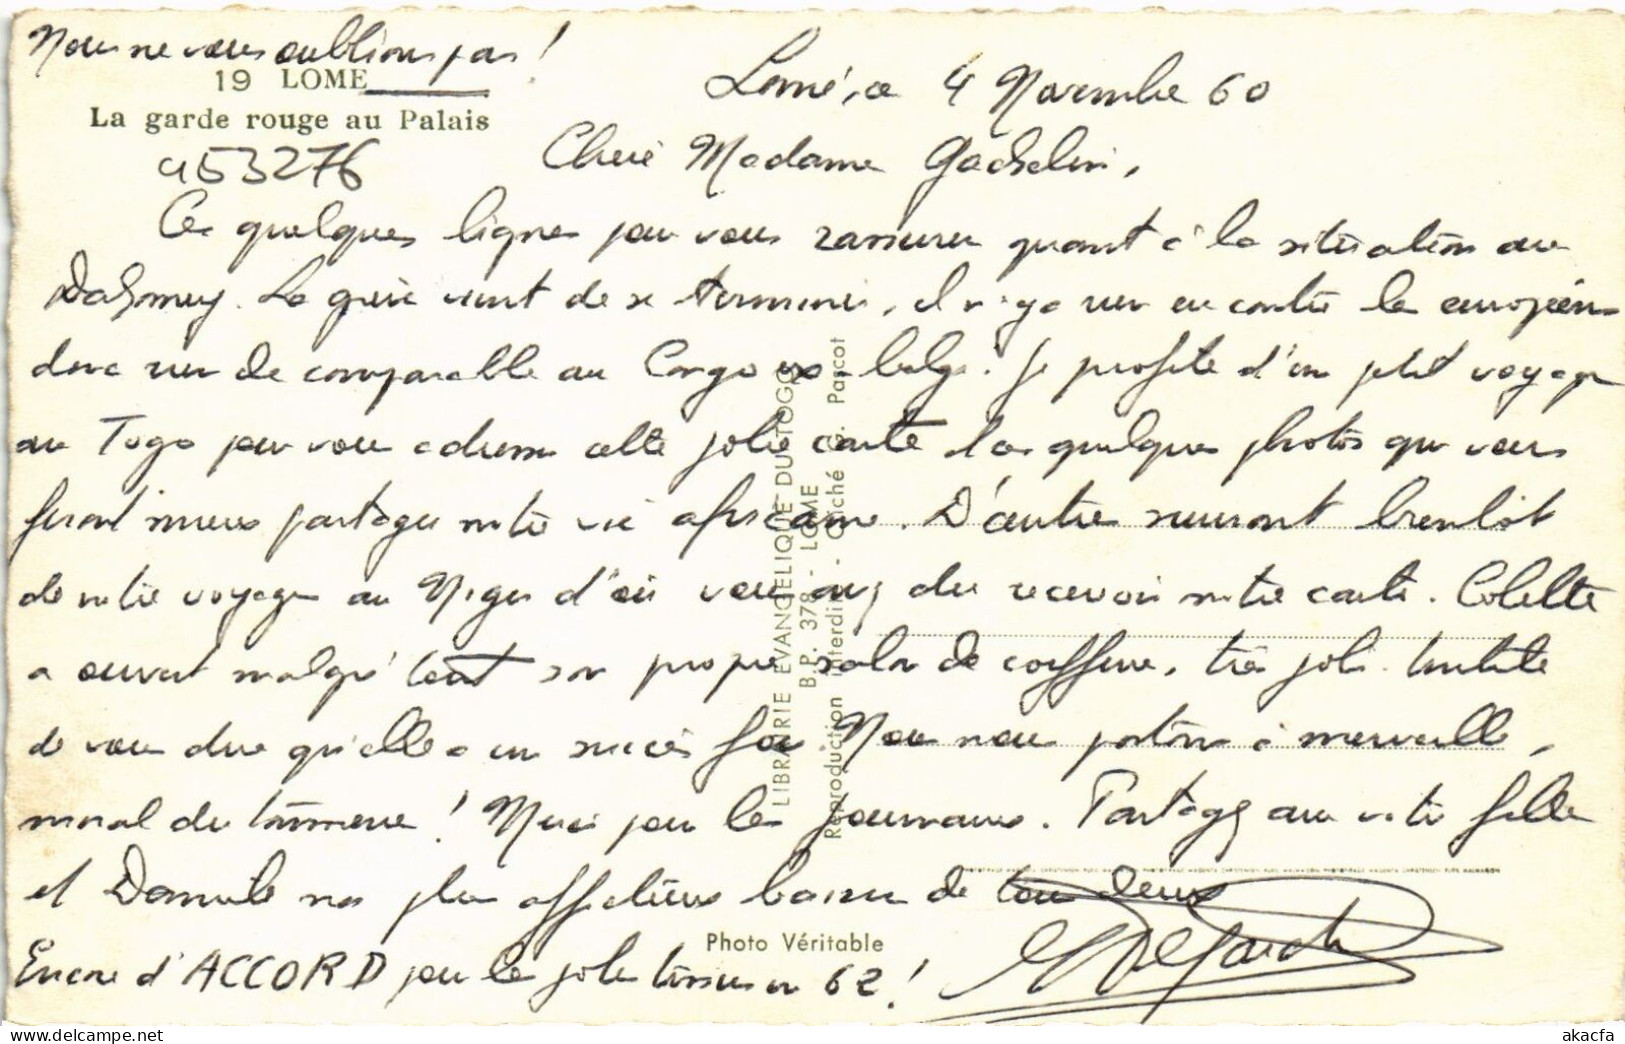 Nous ne vous oublions pas !
19 LOME
La garde rouge au Palais
453276
Lomé, ce 4 Novembre 60
Chère Madame
Ces quelques lignes pour vous rassurer quant à la situation au
Dahomey. La grève vient de se terminer, il n'y a rien eu contre les européens
donc rien de comparable au Congo ex-belge. Je profite d'un petit voyage
au Togo pour vous adresser cette jolie carte et quelques photos qui vous
feront mieux partager notre vie africaine. D'autres suivront bientôt
de notre voyage au Niger d'où vous avez dû recevoir notre carte. Colette
a ouvert malgré tout son propre salon de coiffure, très joli. Inutile
de vous dire qu'elle a un succès fou. Nous nous portons à merveille,
moral du tonnerre ! Merci pour les journaux. Partagez avec votre fille
et Danièle nos plus affectueux baisers de tous deux
Encore d'ACCORD pour les jolis in 62 !
LIBRAIRIE EVANGELIQUE DU TOGO
B.P. 378 - LOME
Reproduction interdite - Cliché Pascot
Photo Véritable
akacfa